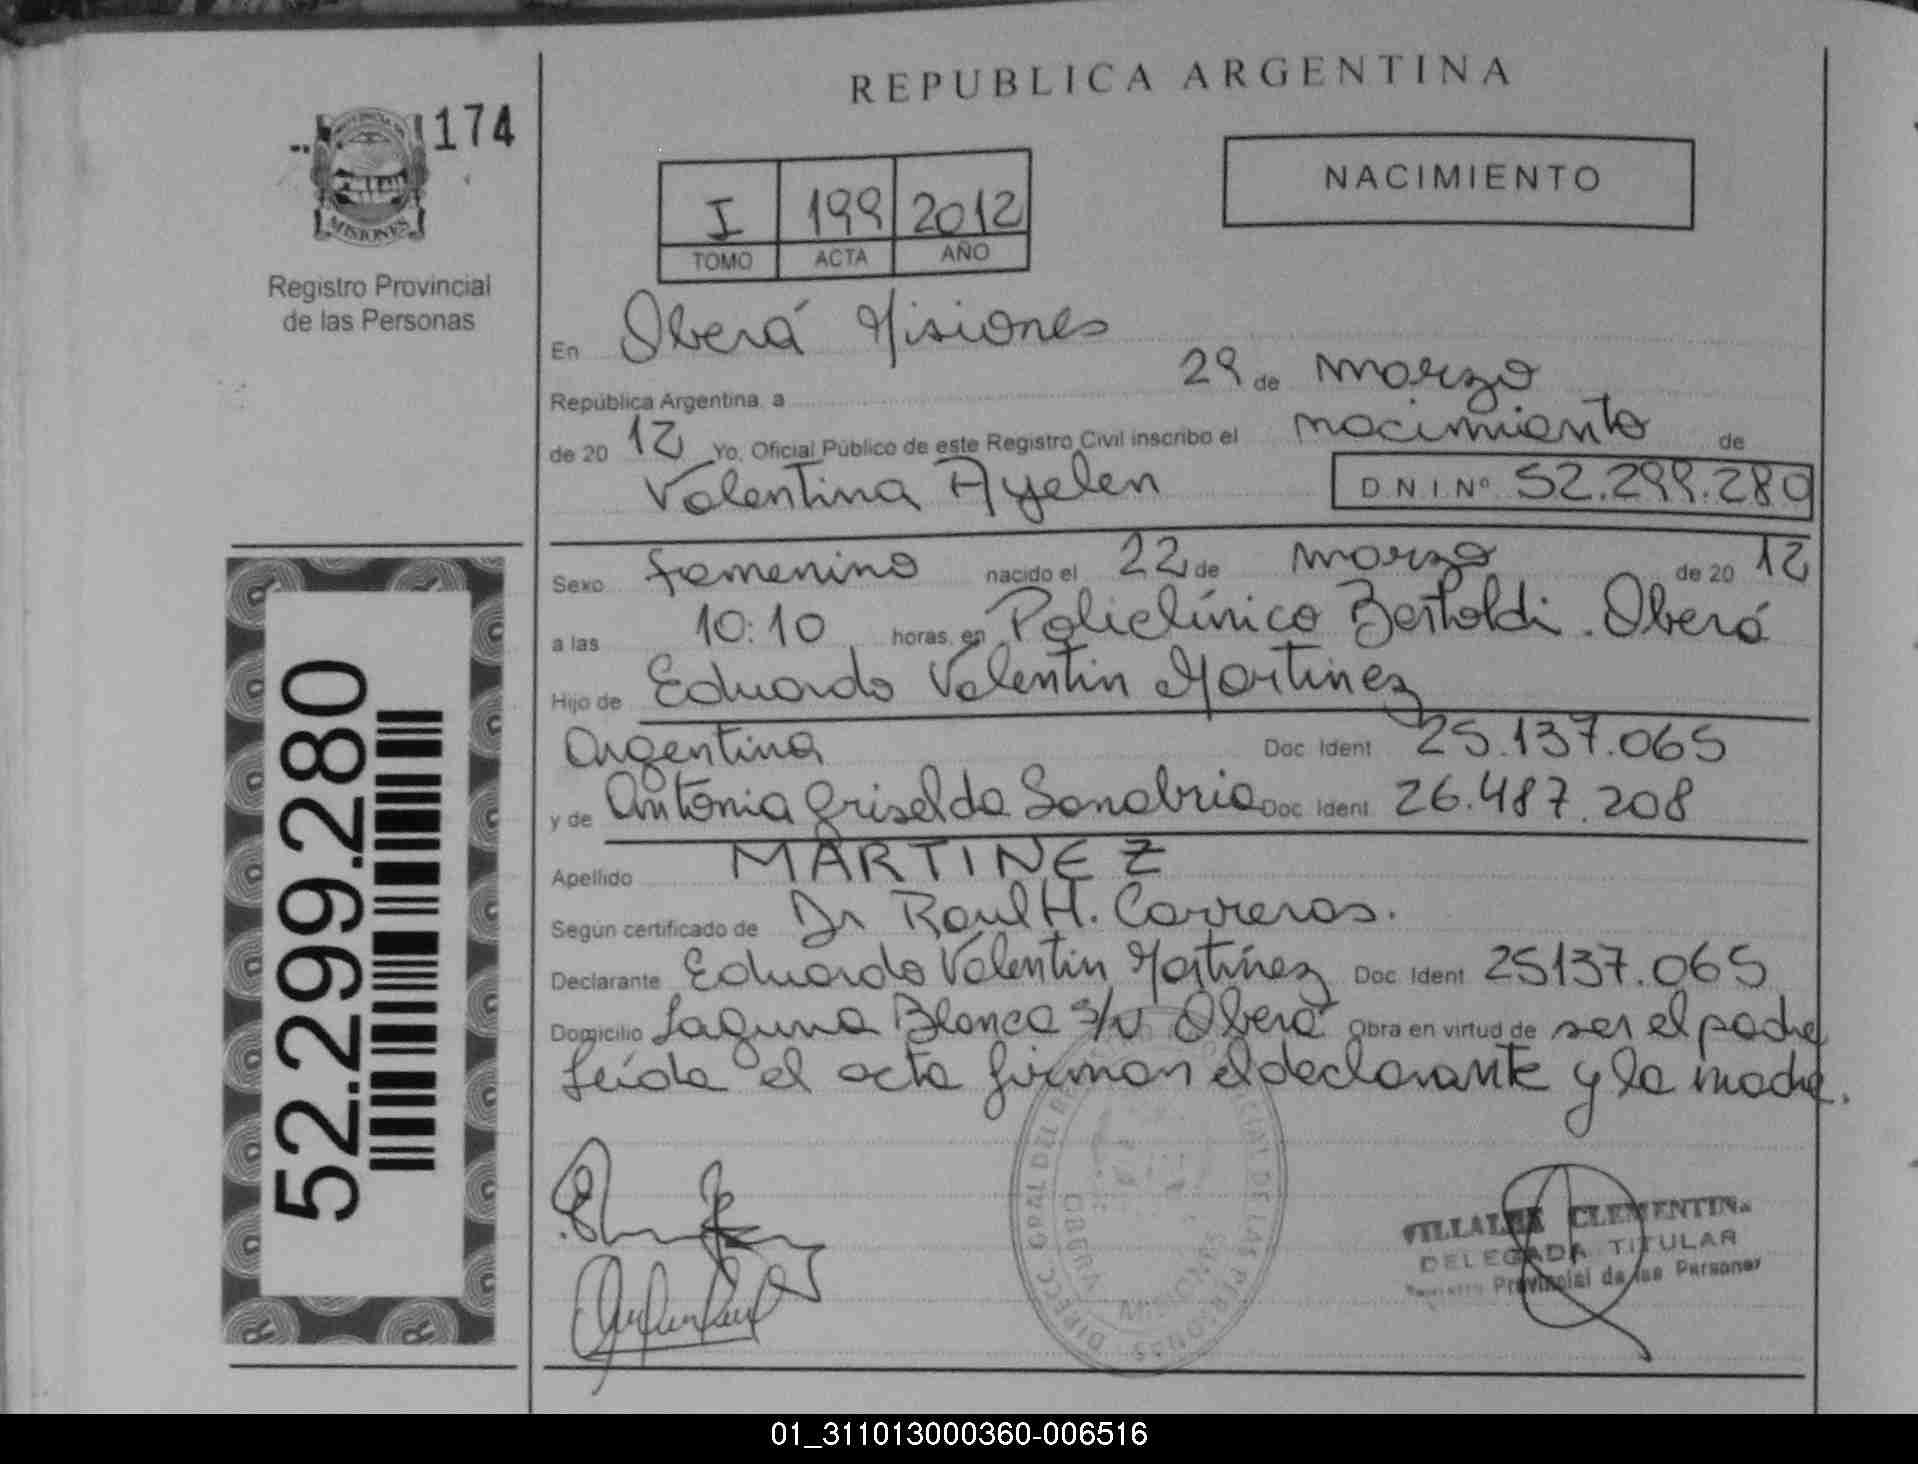 REPUBLICA ARGENTINA
174
PROVINCIA DE
MISIONES
Registro Provincial
de las Personas
NACIMIENTO
I 199 2012
TOMO ACTA AÑO
En Oberá Misiones
República Argentina, a 29 de marzo
de 20 12 Yo, Oficial Público de este Registro Civil inscribo el nacimiento de
Valentina Ayelen D.N.I.Nº 52.299.280
Sexo femenino nacido el 22 de marzo de 20 12
a las 10:10 horas, en Policlínico Bertoldi. Oberá
Hijo de Eduardo Valentin Martinez
Argentina Doc. Ident. 25.137.065
y de Antonia Griselda Sanabria Doc. Ident. 26.487.208
Apellido MARTINEZ
Según certificado de Dr Raul H. Carreras.
Declarante Eduardo Valentin Martínez Doc. Ident. 25137.065
Domicilio Laguna Blanca s/n Oberá Obra en virtud de ser el padre
Leída el acta firman el declarante y la madre.
52.299.280
DIRECC. GRAL DEL REGISTRO PROVINCIAL DE LAS PERSONAS
OBERA
MISIONES
VILLALBA CLEMENTINA
DELEGADA TITULAR
Registro Provincial de las Personas
01_311013000360-006516